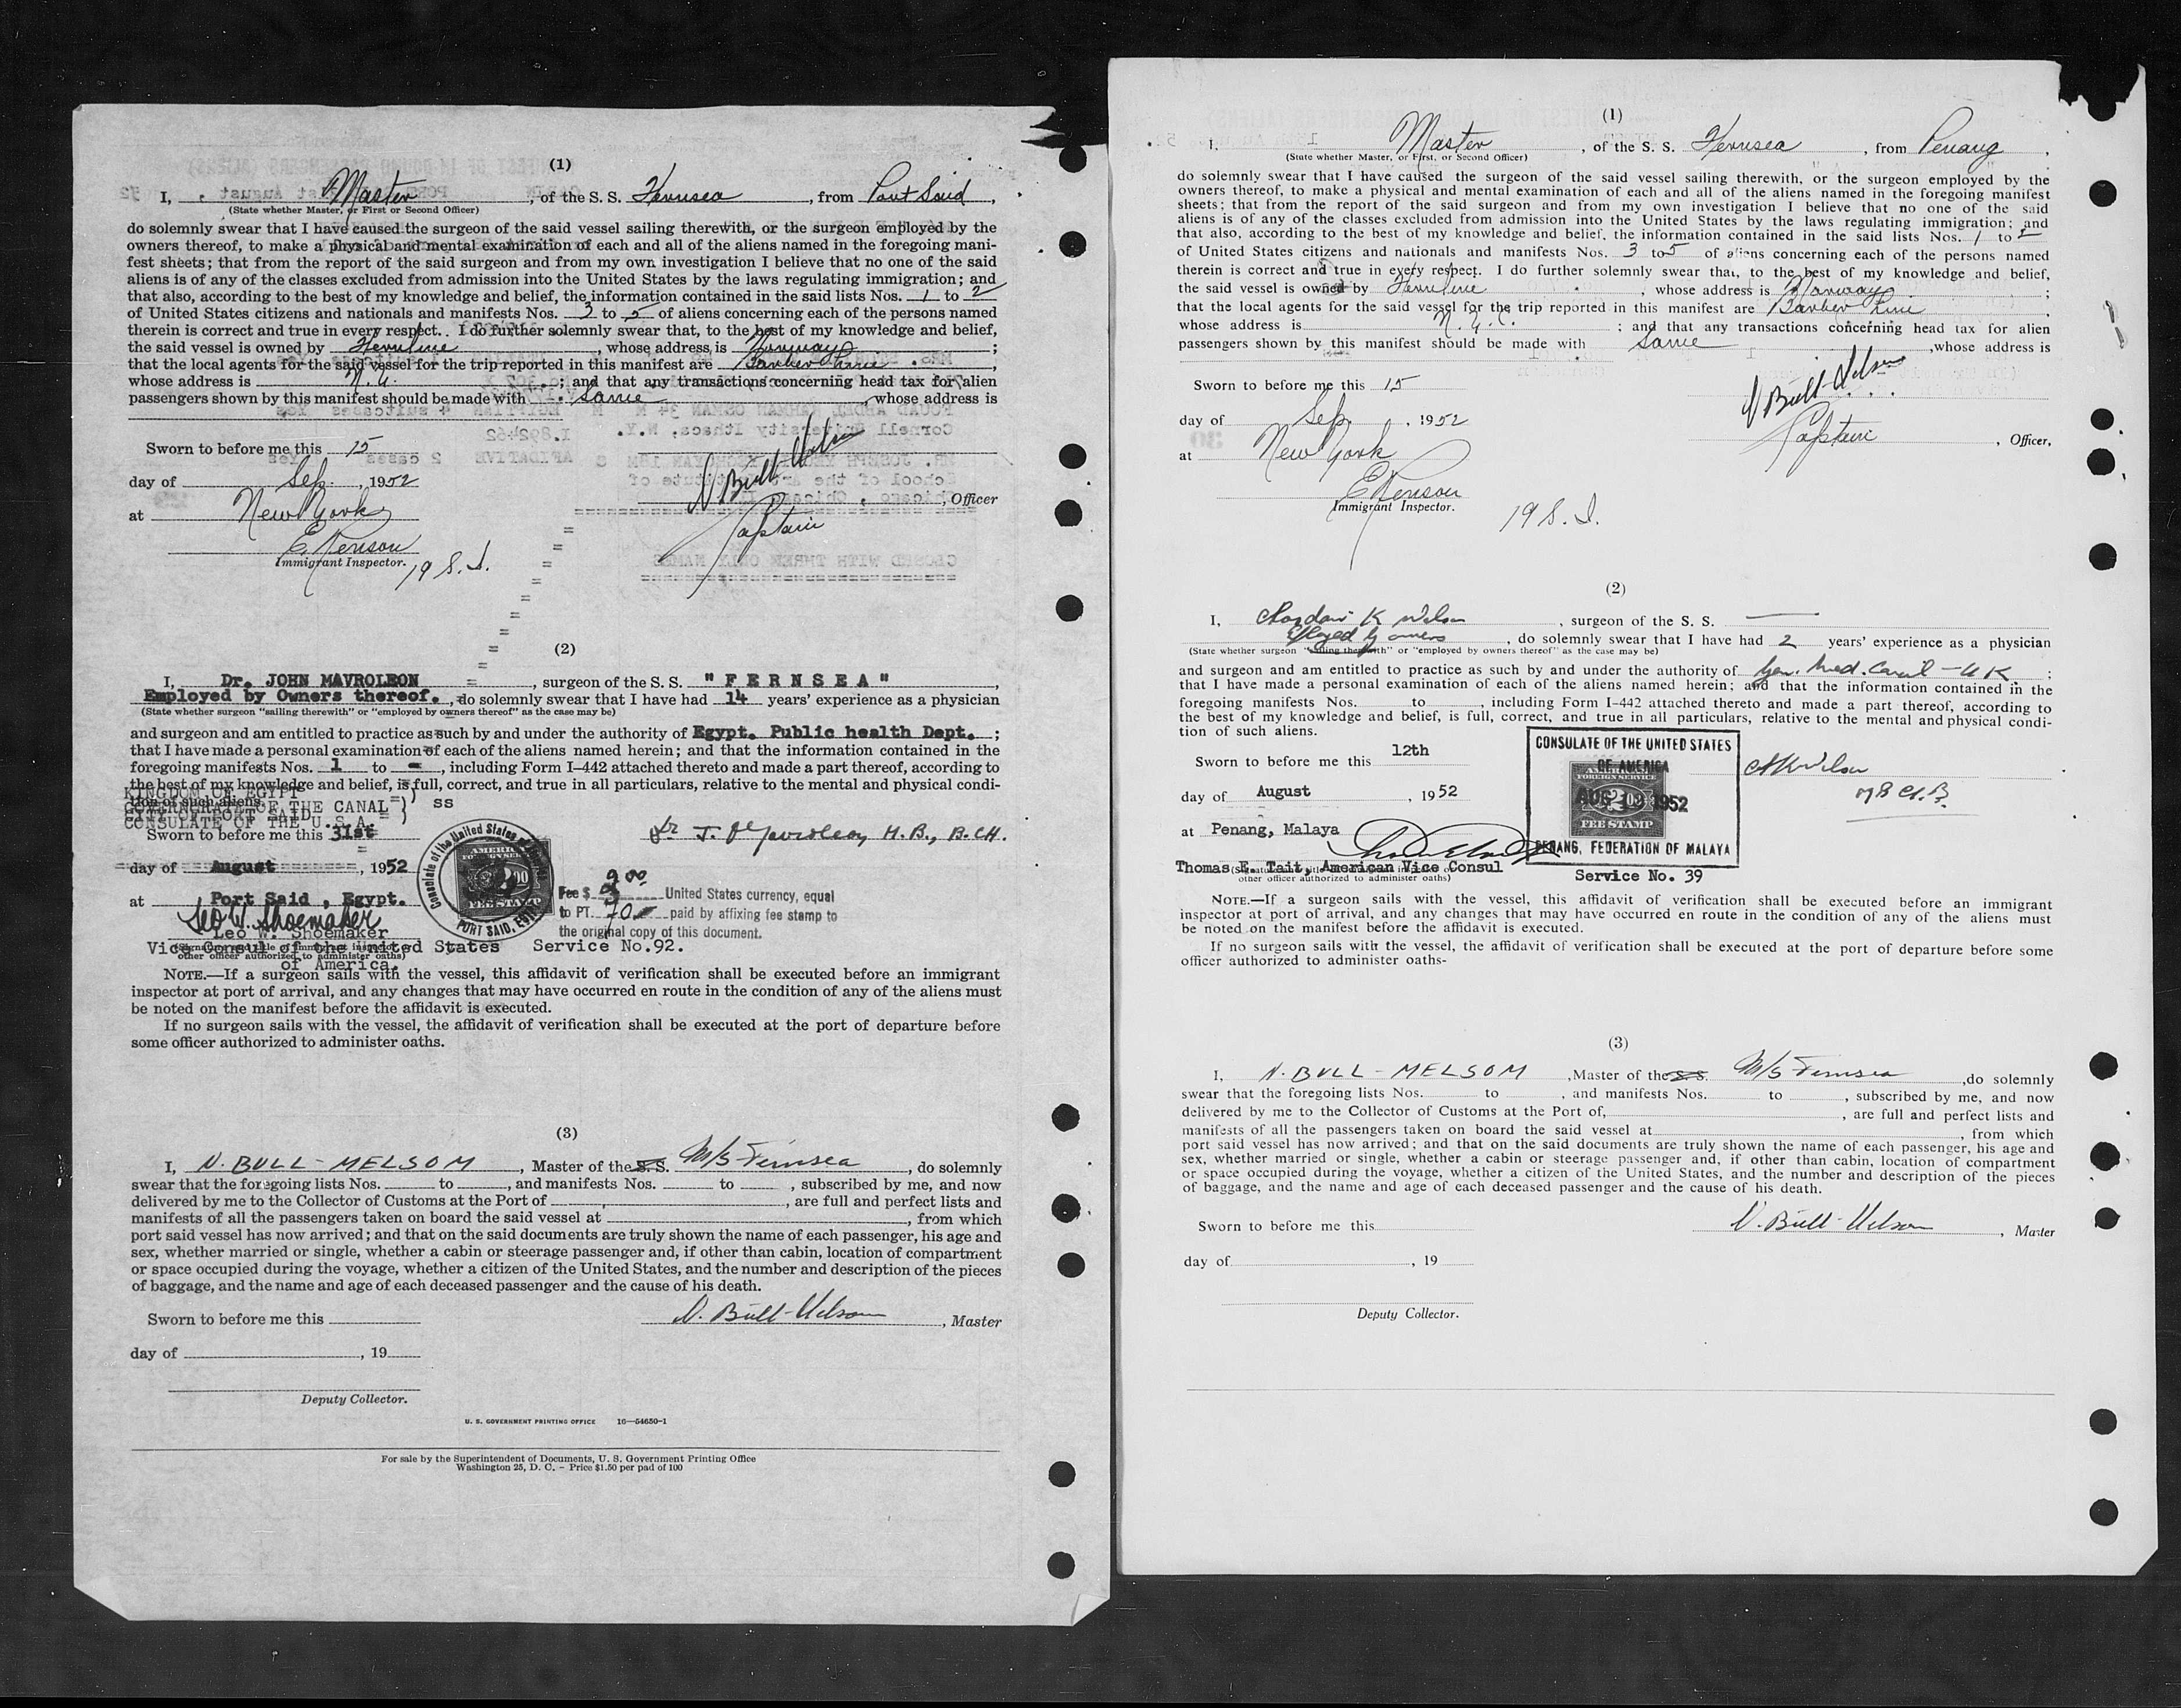 (1)
I, Master, of the S. S. Fernsea, from Port Said,
(State whether Master, or First or Second Officer)
do solemnly swear that I have caused the surgeon of the said vessel sailing therewith, or the surgeon employed by the
owners thereof, to make a physical and mental examination of each and all of the aliens named in the foregoing mani-
fest sheets; that from the report of the said surgeon and from my own investigation I believe that no one of the said
aliens is of any of the classes excluded from admission into the United States by the laws regulating immigration; and
that also, according to the best of my knowledge and belief, the information contained in the said lists Nos. 1 to 2
of United States citizens and nationals and manifests Nos. 3 to 5 of aliens concerning each of the persons named
therein is correct and true in every respect. I do further solemnly swear that, to the best of my knowledge and belief,
the said vessel is owned by Fernline, whose address is Norway;
that the local agents for the said vessel for the trip reported in this manifest are Barber Line,
whose address is N. Y.; and that any transactions concerning head tax for alien
passengers shown by this manifest should be made with Same, whose address is
Sworn to before me this 15
day of Sep., 1952
N Bull-Melsom, Officer
at New York
Captain
Immigrant Inspector. 19 S. I.
(2)
I, Dr. JOHN MAVROLEON, surgeon of the S. S. "FERNSEA",
Employed by Owners thereof., do solemnly swear that I have had 14 years' experience as a physician
(State whether surgeon "sailing therewith" or "employed by owners thereof" as the case may be)
and surgeon and am entitled to practice as such by and under the authority of Egypt. Public health Dept.;
that I have made a personal examination of each of the aliens named herein; and that the information contained in the
foregoing manifests Nos. 1 to -, including Form I-442 attached thereto and made a part thereof, according to
the best of my knowledge and belief, is full, correct, and true in all particulars, relative to the mental and physical condi-
tion of such aliens.
KINGDOM OF EGYPT )
GOVERNORATE OF THE CANAL ) ss
CITY OF PORT SAID
CONSULATE OF THE U.S.A. )
Sworn to before me this 31st
Dr J. Mavroleon M.B., B.CH.
day of August, 1952
at Port Said, Egypt.
Consulate of the United States
PORT SAID, EGYPT
AMERICAN
FOREIGN SERVICE
2.00
FEE STAMP
Fee $ 2.00 United States currency, equal
to PT. 70.- paid by affixing fee stamp to
the original copy of this document.
Leo W. Shoemaker
Leo W. Shoemaker
Vice Consul of the United States Service No.92.
of America.
(Signature and title of immigrant inspector or
other officer authorized to administer oaths)
NOTE.—If a surgeon sails with the vessel, this affidavit of verification shall be executed before an immigrant
inspector at port of arrival, and any changes that may have occurred en route in the condition of any of the aliens must
be noted on the manifest before the affidavit is executed.
If no surgeon sails with the vessel, the affidavit of verification shall be executed at the port of departure before
some officer authorized to administer oaths.
(3)
I, N. BULL-MELSOM, Master of the S. S. M/S Fernsea, do solemnly
swear that the foregoing lists Nos. to, and manifests Nos. to, subscribed by me, and now
delivered by me to the Collector of Customs at the Port of, are full and perfect lists and
manifests of all the passengers taken on board the said vessel at, from which
port said vessel has now arrived; and that on the said documents are truly shown the name of each passenger, his age and
sex, whether married or single, whether a cabin or steerage passenger and, if other than cabin, location of compartment
or space occupied during the voyage, whether a citizen of the United States, and the number and description of the pieces
of baggage, and the name and age of each deceased passenger and the cause of his death.
Sworn to before me this
N. Bull-Melsom, Master
day of, 19
Deputy Collector.
U. S. GOVERNMENT PRINTING OFFICE 16—54650-1
For sale by the Superintendent of Documents, U. S. Government Printing Office
Washington 25, D. C. - Price $1.50 per pad of 100
(1)
I. Master, of the S. S. Fernsea, from Penang,
(State whether Master, or First, or Second Officer)
do solemnly swear that I have caused the surgeon of the said vessel sailing therewith, or the surgeon employed by the
owners thereof, to make a physical and mental examination of each and all of the aliens named in the foregoing manifest
sheets; that from the report of the said surgeon and from my own investigation I believe that no one of the said
aliens is of any of the classes excluded from admission into the United States by the laws regulating immigration; and
that also, according to the best of my knowledge and belief, the information contained in the said lists Nos. 1 to 2
of United States citizens and nationals and manifests Nos. 3 to 5 of aliens concerning each of the persons named
therein is correct and true in every respect. I do further solemnly swear that, to the best of my knowledge and belief,
the said vessel is owned by Fernline, whose address is Norway;
that the local agents for the said vessel for the trip reported in this manifest are Barber Line,
whose address is N. Y. C.; and that any transactions concerning head tax for alien
passengers shown by this manifest should be made with Same, whose address is
Sworn to before me this 15
N Bull-Melsom
day of Sep., 1952
Captain, Officer,
at New York
Immigrant Inspector. 19 S. I.
(2)
I, K Wilson, surgeon of the S. S. —
Employed by owners, do solemnly swear that I have had 2 years' experience as a physician
(State whether surgeon "sailing therewith" or "employed by owners thereof" as the case may be)
and surgeon and am entitled to practice as such by and under the authority of Gen. Med. Council - UK;
that I have made a personal examination of each of the aliens named herein; and that the information contained in the
foregoing manifests Nos. to, including Form I-442 attached thereto and made a part thereof, according to
the best of my knowledge and belief, is full, correct, and true in all particulars, relative to the mental and physical condi-
tion of such aliens.
Sworn to before me this 12th
day of August, 1952
at Penang, Malaya
CONSULATE OF THE UNITED STATES
OF AMERICA
FOREIGN SERVICE
AUG 12 1952
FEE STAMP
PENANG, FEDERATION OF MALAYA
CKWilson
M B Ch. B.
Thomas E. Tait, American Vice Consul
(Signature and title of immigrant inspector or
other officer authorized to administer oaths)
Service No. 39
NOTE.—If a surgeon sails with the vessel, this affidavit of verification shall be executed before an immigrant
inspector at port of arrival, and any changes that may have occurred en route in the condition of any of the aliens must
be noted on the manifest before the affidavit is executed.
If no surgeon sails with the vessel, the affidavit of verification shall be executed at the port of departure before some
officer authorized to administer oaths-
(3)
I, N. BULL-MELSOM, Master of the S.S. M/S Fernsea, do solemnly
swear that the foregoing lists Nos. to, and manifests Nos. to, subscribed by me, and now
delivered by me to the Collector of Customs at the Port of,, are full and perfect lists and
manifests of all the passengers taken on board the said vessel at, from which
port said vessel has now arrived; and that on the said documents are truly shown the name of each passenger, his age and
sex, whether married or single, whether a cabin or steerage passenger and, if other than cabin, location of compartment
or space occupied during the voyage, whether a citizen of the United States, and the number and description of the pieces
of baggage, and the name and age of each deceased passenger and the cause of his death.
Sworn to before me this
N. Bull-Melsom, Master
day of, 19
Deputy Collector.